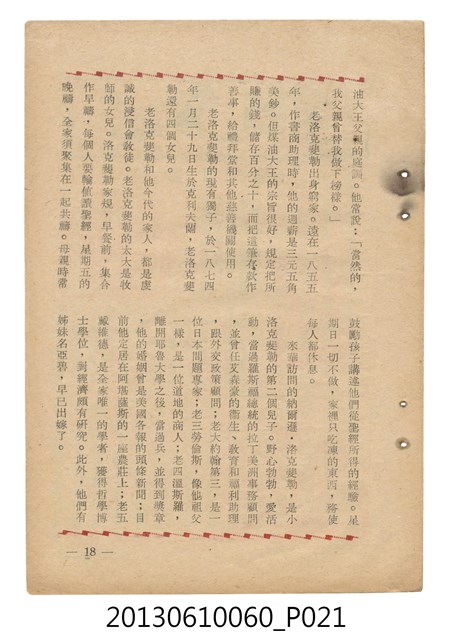 油大王父親的庭訓。他常說：「當然的，
我父親曾替我做下榜樣。」
老洛克斐勒出身窮家。遠在一八五五
年，作書商助理時，他的週薪是三元五角
美鈔。但煤油大王的宗旨很好，規定把所
賺的錢，儲存百分之十，而把這筆存款作
善事，給禮拜堂和其他慈善機關使用。
老洛克斐勒的現有獨子，於一八七四
年一月二十九日生於克利夫蘭，老洛克斐
勒還有四個女兒。
老洛克斐勒和他今代的家人，都是虔
誠的浸信會敎徒。老洛克斐勒的太太是牧
師的女兒。洛克斐勒家規，早餐前，集合
作早禱，每個人要輪値讀聖經，星期五的
晚禱，全家須聚集在一起共禱。母親時常
鼓勵孩子講述他們從聖經所得的經驗。星
期日一切不做，家裡只吃凍的東西，務使
每人都休息。
來華訪問的納爾遜・洛克斐勒，是小
洛克斐勒的第二個兒子。野心勃勃，愛活
動，當過羅斯福總統的拉丁美洲事務顧問
，並曾任艾森豪的衞生、敎育和福利助理
，跟外交政策顧問；老大約翰第三，是一
位日本問題專家；老三勞倫斯，像他祖父
一樣，是一位道地的商人；老四溫斯羅，
離開耶魯大學之後，當過兵，並得到獎章
，他的婚姻曾是美國各報的頭條新聞；目
前他定居在阿塔薩斯的一座農莊上；老五
戴維德，是全家唯一的學者，獲得哲學博
士學位，對經濟頗有研究。此外，他們有
姊妹名亞碧，早已出嫁了。
— 18 —
20130610060_P021